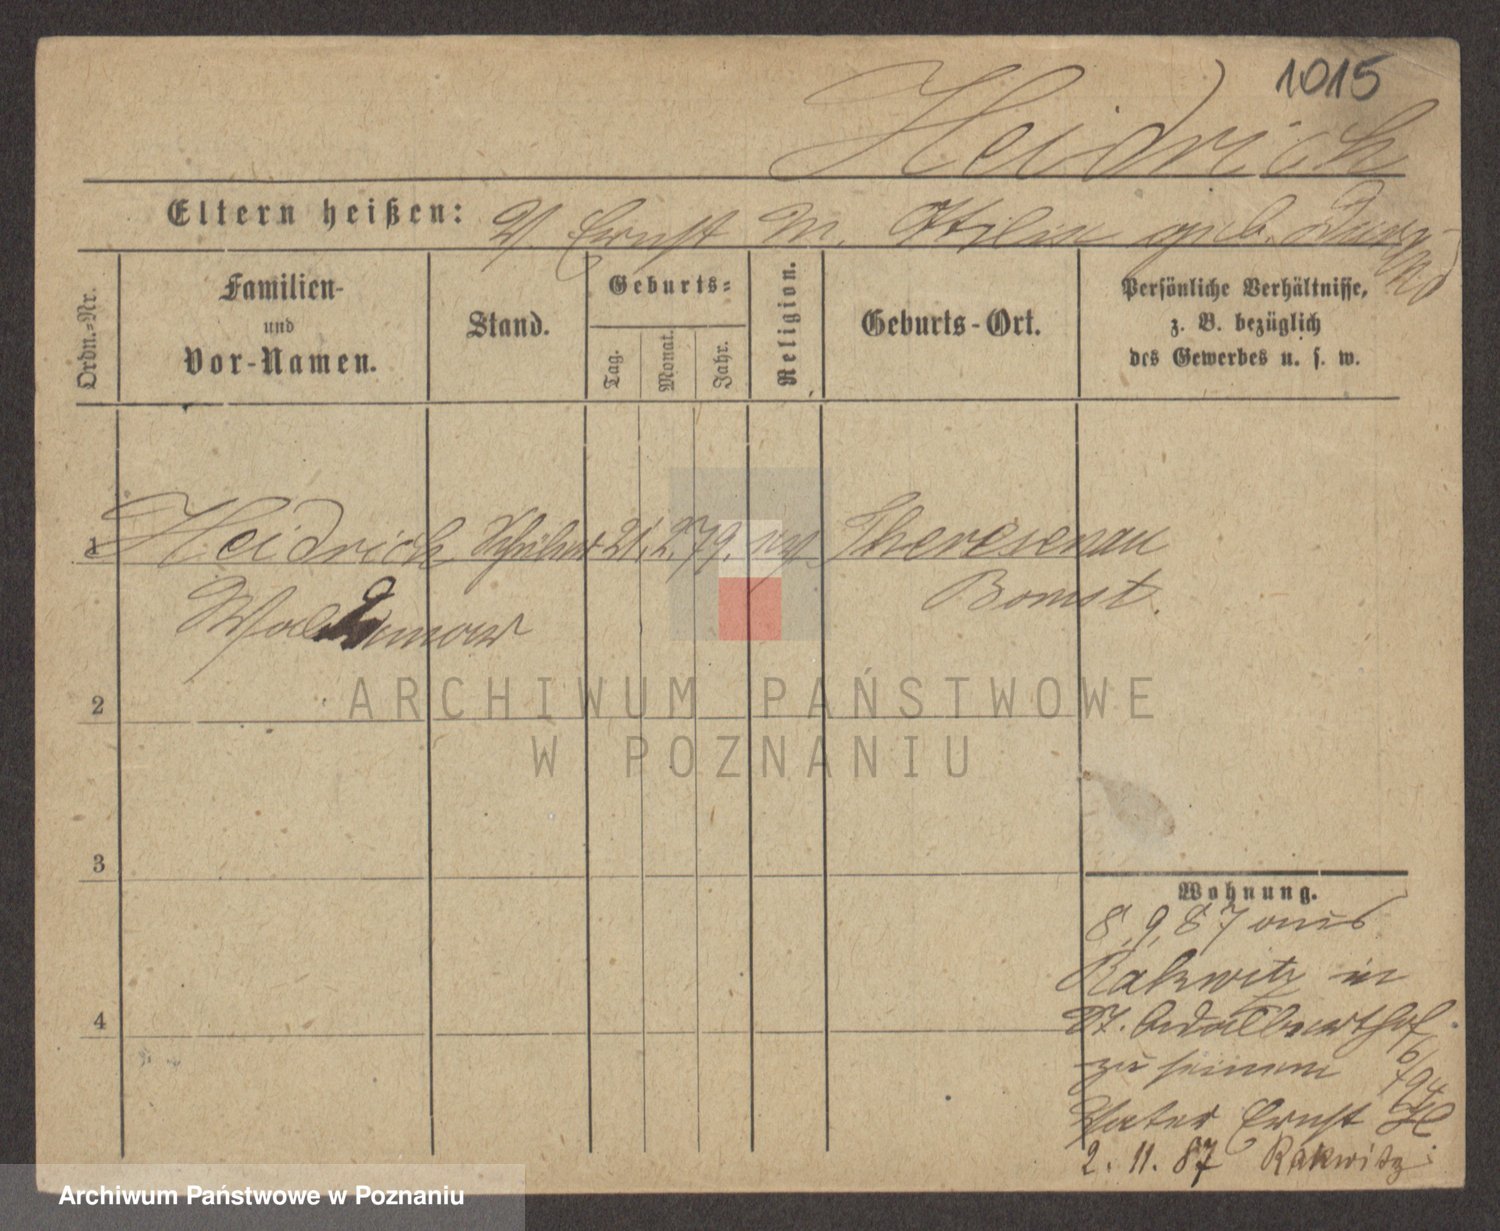 1015
Heidrich
Eltern heißen: V. Ernst M. Otilie geb.
Ordn.=Nr.
Familien-
und
Vor-Namen.
Stand.
Geburts=
Tag.
Monat.
Jahr.
Religion.
Geburts-Ort.
Persönliche Verhältnisse,
z. B. bezüglich
des Gewerbes u. s. w.
1 Heidrich Schüler 21. 2. 79. Theresenau
Woldemar Bomst.
2
3
4
Wohnung.
8. 9. 87 aus
Rakwitz in
St. Adalberthof
zu seinem
Vater Ernst H
2. 11. 87 Rakwitz
ARCHIWUM PAŃSTWOWE
W POZNANIU
Archiwum Państwowe w Poznaniu